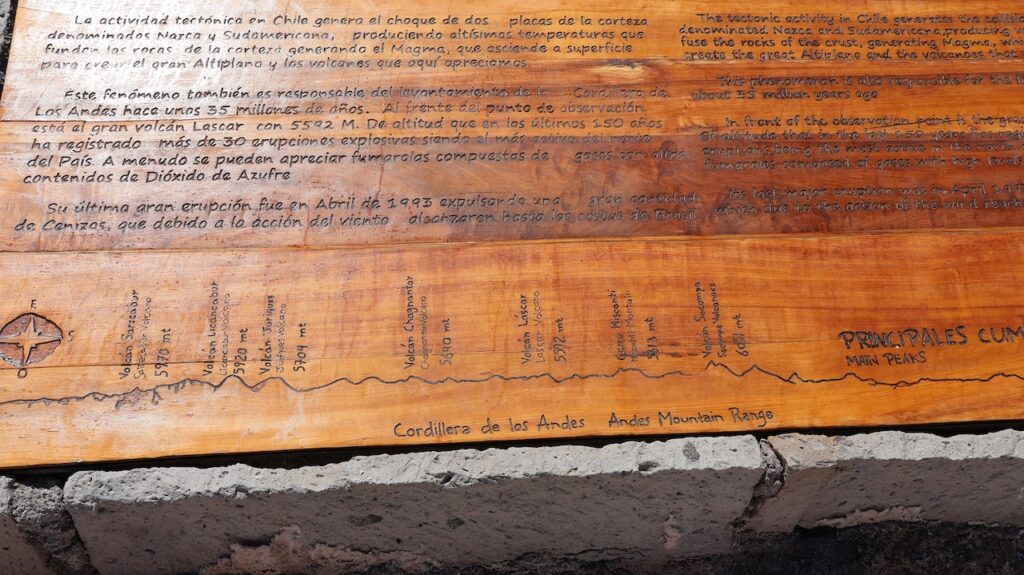 La actividad tectónica en Chile genera el choque de dos placas de la corteza
denominadas Nazca y Sudamericana, produciendo altísimas temperaturas que
funden las rocas de la corteza generando el Magma, que asciende a superficie
para crear el gran Altiplano y los volcanes que aquí apreciamos.
Este fenómeno también es responsable del levantamiento de la Cordillera de
Los Andes hace unos 35 millones de años. Al frente del punto de observación
está el gran volcán Lascar con 5592 M. De altitud que en los últimos 150 años
ha registrado más de 30 erupciones explosivas siendo el más activo del norte
del País. A menudo se pueden apreciar fumarolas compuestas de gases con altos
contenidos de Dióxido de Azufre
Su última gran erupción fue en Abril de 1993 expulsando una gran cantidad
de Cenizas, que debido a la acción del viento alcanzaron hasta las costas de Brasil.
The tectonic activity in Chile generates the
denominated Nazca and Sudamericana, producing
fuse the rocks of the crust, generating Magma,
create the great Altiplano and the volcanoes
This phenomenon is also responsible for the
about 35 million years ago
In front of the observation point is the
Of altitude that in the last 150 years has
being the most active in the north
fumaroles composed of gases with high levels
Its last major eruption was in April
which due to the action of the wind
E
S
O
Volcán Sairecabur
5970 mt
Volcán Licancabur
5920 mt
Volcán Juriques
5704 mt
Volcán Chagnantor
5640 mt
Volcán Láscar
Lascar Volcano
5592 mt
Cerro Miscanti
Miscanti Mountain
Volcán Socompa
PRINCIPALES
MAIN PEAKS
Cordillera de los Andes Andes Mountain Range